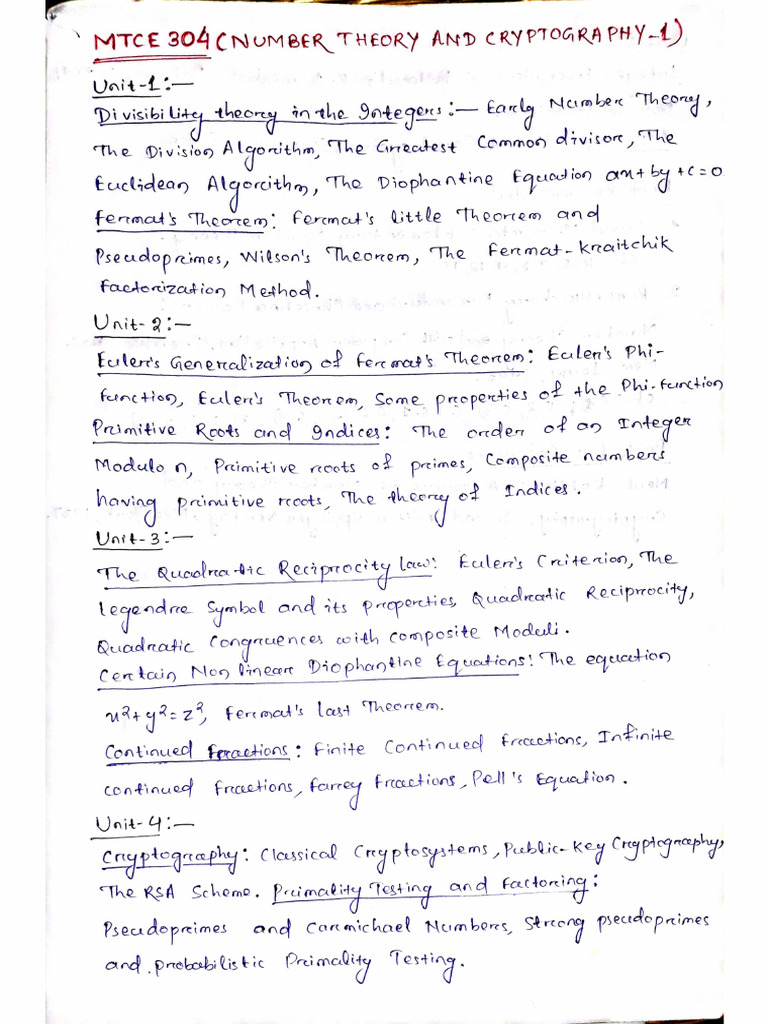 MTCE 304 (NUMBER THEORY AND CRYPTOGRAPHY-1)
Unit-1:—
Divisibility theory in the Integers:— Early Number Theory,
The Division Algorithm, The Greatest Common divisor, The
Euclidean Algorithm, The Diophantine Equation ax+by+c=0
Fermat's Theorem: Fermat's little Theorem and
Pseudoprimes, Wilson's Theorem, The Fermat-Kraitchik
Factorization Method.
Unit-2:—
Euler's Generalization of Fermat's Theorem: Euler's Phi-
function, Euler's Theorem, Some properties of the Phi-function
Primitive Roots and Indices: The order of an Integer
Modulo n, Primitive roots of primes, Composite numbers
having primitive roots, The theory of Indices.
Unit-3:—
The Quadratic Reciprocity Law: Euler's Criterion, The
Legendre Symbol and its properties, Quadratic Reciprocity,
Quadratic Congruences with composite Moduli.
Certain Non linear Diophantine Equations: The equation
x²+y²=z², Fermat's last Theorem.
Continued Fractions: Finite Continued fractions, Infinite
continued fractions, Farey fractions, Pell's Equation.
Unit-4:—
Cryptography: Classical Cryptosystems, Public-key Cryptography,
The RSA Scheme. Primality Testing and Factoring:
Pseudoprimes and Carmichael Numbers, Strong pseudoprimes
and probabilistic Primality Testing.